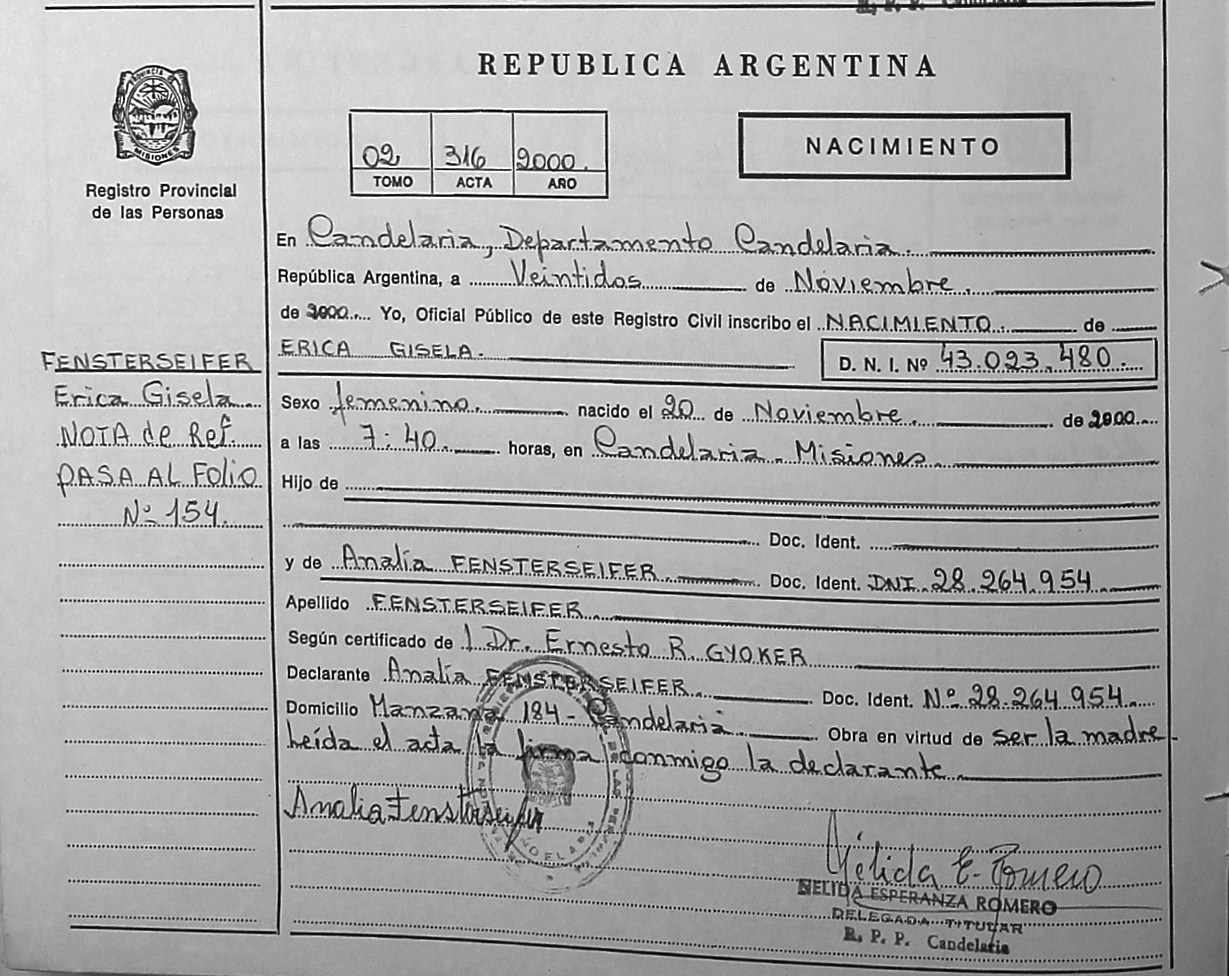 REPUBLICA ARGENTINA
PROVINCIA DE MISIONES
Registro Provincial
de las Personas
02 316 2000.
TOMO ACTA AÑO
NACIMIENTO
En Candelaria, Departamento Candelaria.
República Argentina, a Veintidos de Noviembre.
de 2000 Yo, Oficial Público de este Registro Civil inscribo el NACIMIENTO. de
ERICA GISELA. D. N. I. Nº 43.023.480.
Sexo femenino. nacido el 20 de Noviembre. de 2000
a las 7:40. horas, en Candelaria - Misiones.
Hijo de
Doc. Ident.
y de Analía FENSTERSEIFER. Doc. Ident. DNI. 28.264.954
Apellido FENSTERSEIFER.
Según certificado de l Dr. Ernesto R. GYOKER
Declarante Analía FENSTERSEIFER. Doc. Ident. Nº 28.264.954.
Domicilio Manzana 184 - Candelaria. Obra en virtud de ser la madre.
Leída el acta la firma conmigo la declarante.
Analia Fensterseifer
Nélida E. Romero
NELIDA ESPERANZA ROMERO
DELEGADA TITULAR
R. P. P. Candelaria
FENSTERSEIFER
Erica Gisela.
NOTA de Ref.
PASA AL FOLIO
Nº 154.